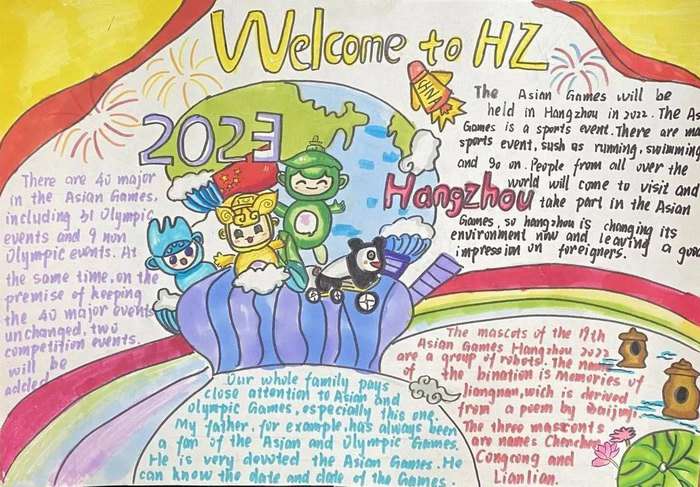 Welcome to HZ
2023
HNH
Hangzhou
There are 40 major
in the Asian Games,
including 31 Olympic
events and 9 non
Olympic events. At
the same time, on the
premise of keeping
the 40 major events
unchanged, two
competition events.
will be
added
The Asian Games will be
held in Hangzhou in 2022. The As
Games is a sports event. There are ma
sports event, sush as running, swimming
and go on. People from all over the
world will come to visit and
take part in the Asian
Games, so hangzhou is changing its
environment now and leaving a good
impression on foreigners.
Our whole family pays
close attention to Asian and
Olympic Games, especially this one.
My father, for example, has always been
a fan of the Asian and Olympic Games.
He is very devoted the Asian Games. He
can know the date and date of the Games.
The mascots of the 19th
Asian Games Hangzhou 2022
are a group of robots. The name
of the bination is Memories of
Jiangnan, wich is derived
from a poem by Baijuyi.
The three masconts
are names Chenchen,
Congcong and
Lianlian.